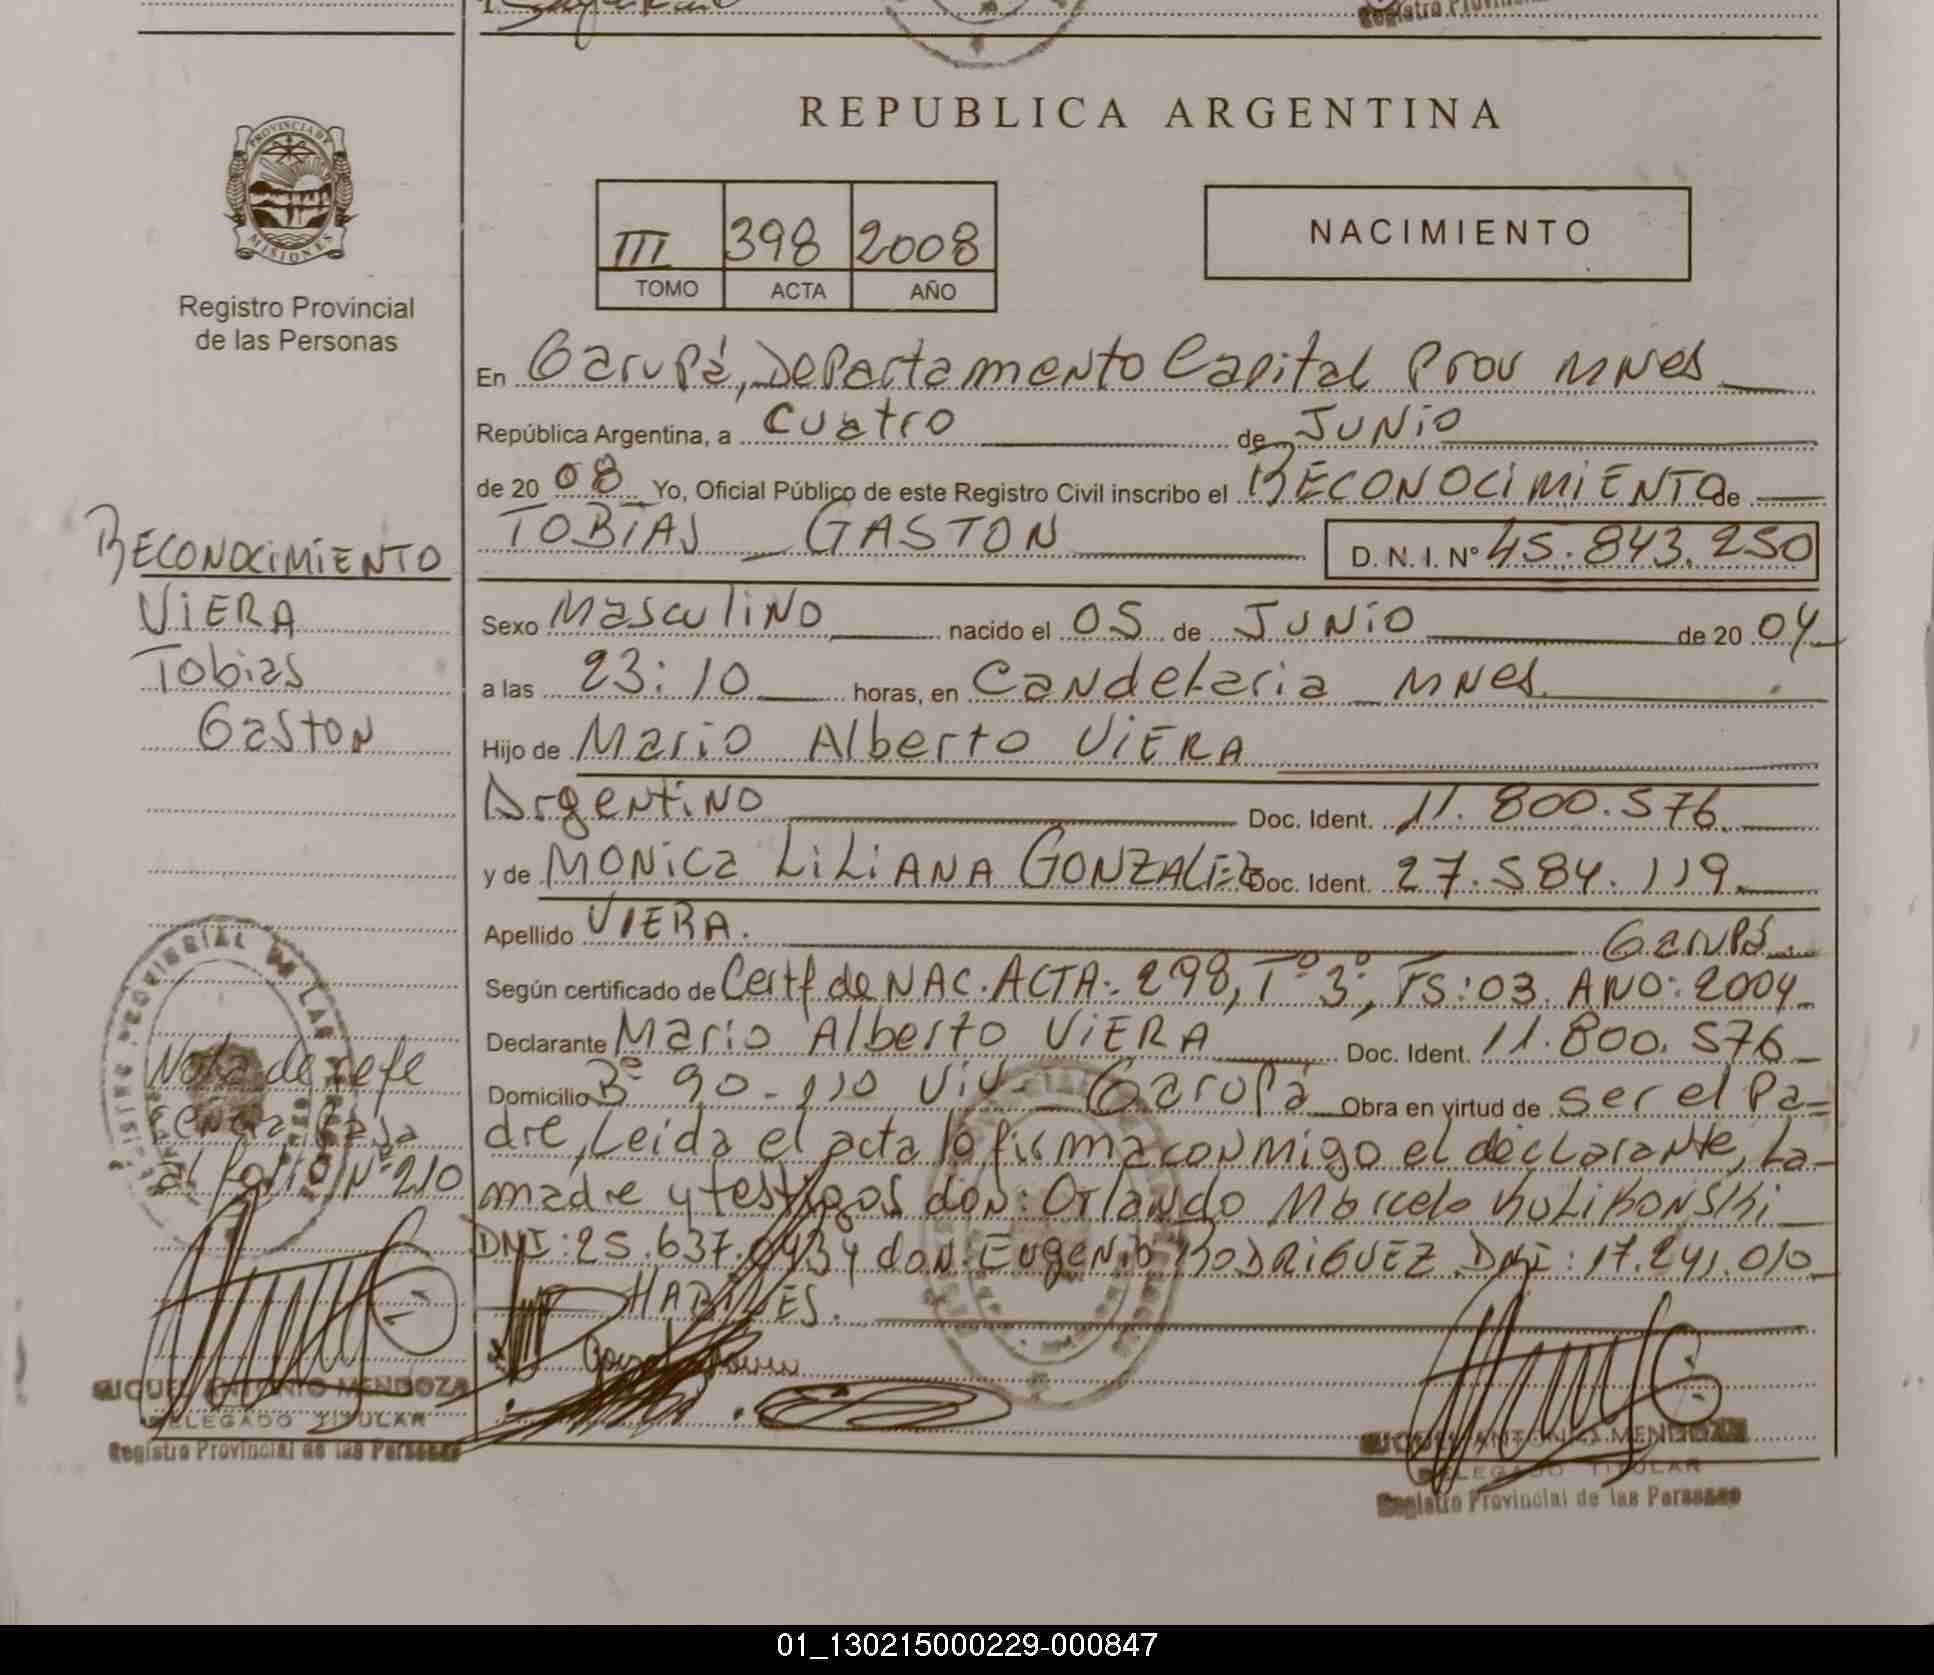 REPUBLICA ARGENTINA
PROVINCIA DE
MISIONES
Registro Provincial
de las Personas
III 398 2008
TOMO ACTA AÑO
NACIMIENTO
En Garupá, Departamento Capital Prov MNES
República Argentina, a cuatro de JUNIO
de 2008 Yo, Oficial Público de este Registro Civil inscribo el RECONOCIMIENTO de
TOBIAS GASTON D. N. I. Nº 45.843.250
RECONOCIMIENTO
VIERA
Tobias
Gaston
Sexo Masculino nacido el 05 de JUNIO de 2004
a las 23:10 horas, en Candelaria MNES
Hijo de Mario Alberto VIERA
Argentino Doc. Ident. 11.800.576
y de MONICA LILIANA GONZALEZ Doc. Ident. 27.584.119
Apellido VIERA. Garupá
Según certificado de Certf de NAC. ACTA: 298, Tº 3º, FS: 03. AÑO: 2004
Declarante Mario Alberto VIERA Doc. Ident. 11.800.576
Domicilio Bº 90-110 Viv- Garupá Obra en virtud de ser el Pa=
dre, Leida el acta la firma conmigo el declarante, La
madre y testigos don: Orlando Marcelo KULIKONSKI
DNI: 25.637.043 y don: Eugenio RODRIGUEZ DNI: 17.241.010
HABILES.
Nota de refe
al folio Nº 210
MIGUEL ANTONIO MENDOZA
DELEGADO TITULAR
Registro Provincial de las Personas
MIGUEL ANTONIO MENDOZA
DELEGADO TITULAR
Registro Provincial de las Personas
01_130215000229-000847